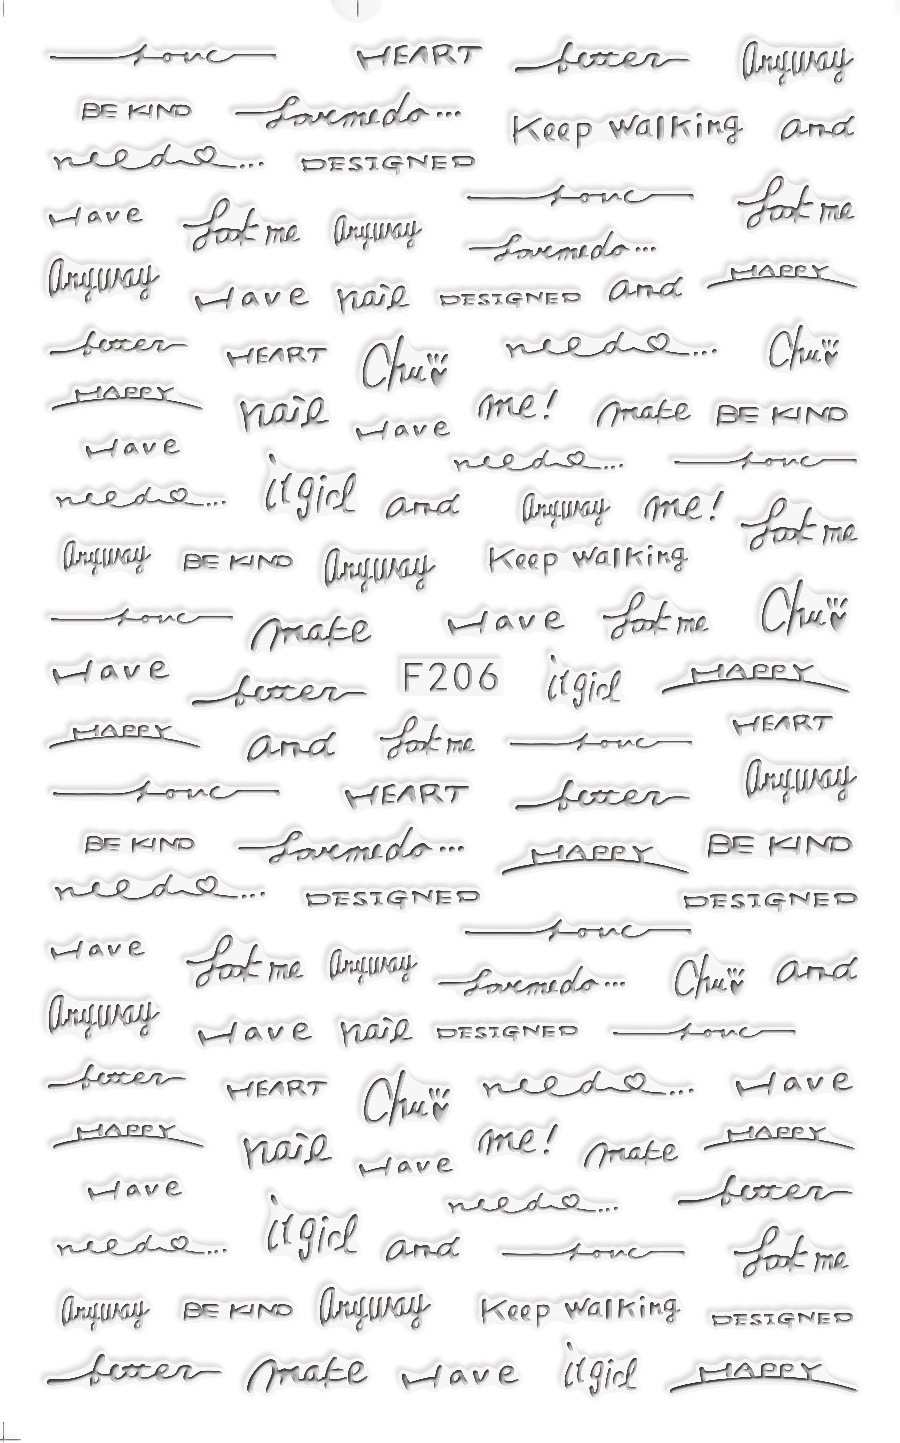 love HEART better Anyway
BE KIND Lovemedo...
Keep walking and
need... DESIGNED
love Look me
Have Look me Anyway
Lovemedo...
Anyway Have nail DESIGNED and HAPPY
better HEART Chu need... Chu
HAPPY nail Have me! make BE KIND
Have need... love
need... it girl and Anyway me! Look me
Anyway BE KIND Anyway Keep walking
love make Have Look me Chu
Have better F206 it girl HAPPY
HAPPY and Look me love HEART
love HEART better Anyway
BE KIND Lovemedo... HAPPY BE KIND
need... DESIGNED DESIGNED
love
Have Look me Anyway Lovemedo... Chu and
Anyway Have nail DESIGNED love
better HEART Chu need... Have
HAPPY nail Have me! make HAPPY
Have need... better
need... it girl and love Look me
Anyway BE KIND Anyway Keep walking DESIGNED
better make Have it girl HAPPY